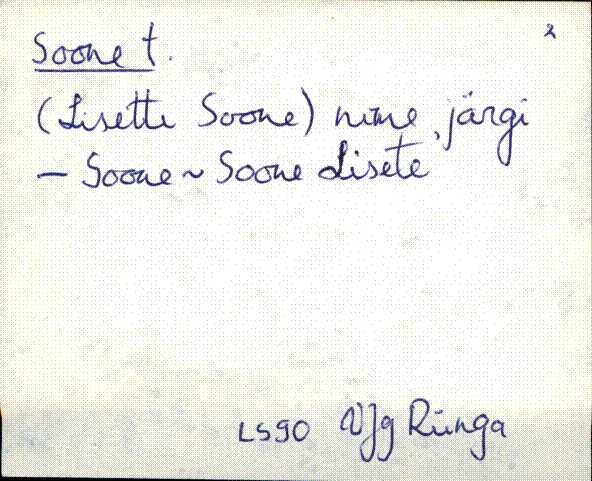 Soone t. 2
(Lisette Soone) nime järgi
— Soone ~ Soone Lisete
LS90 VJg Rünga